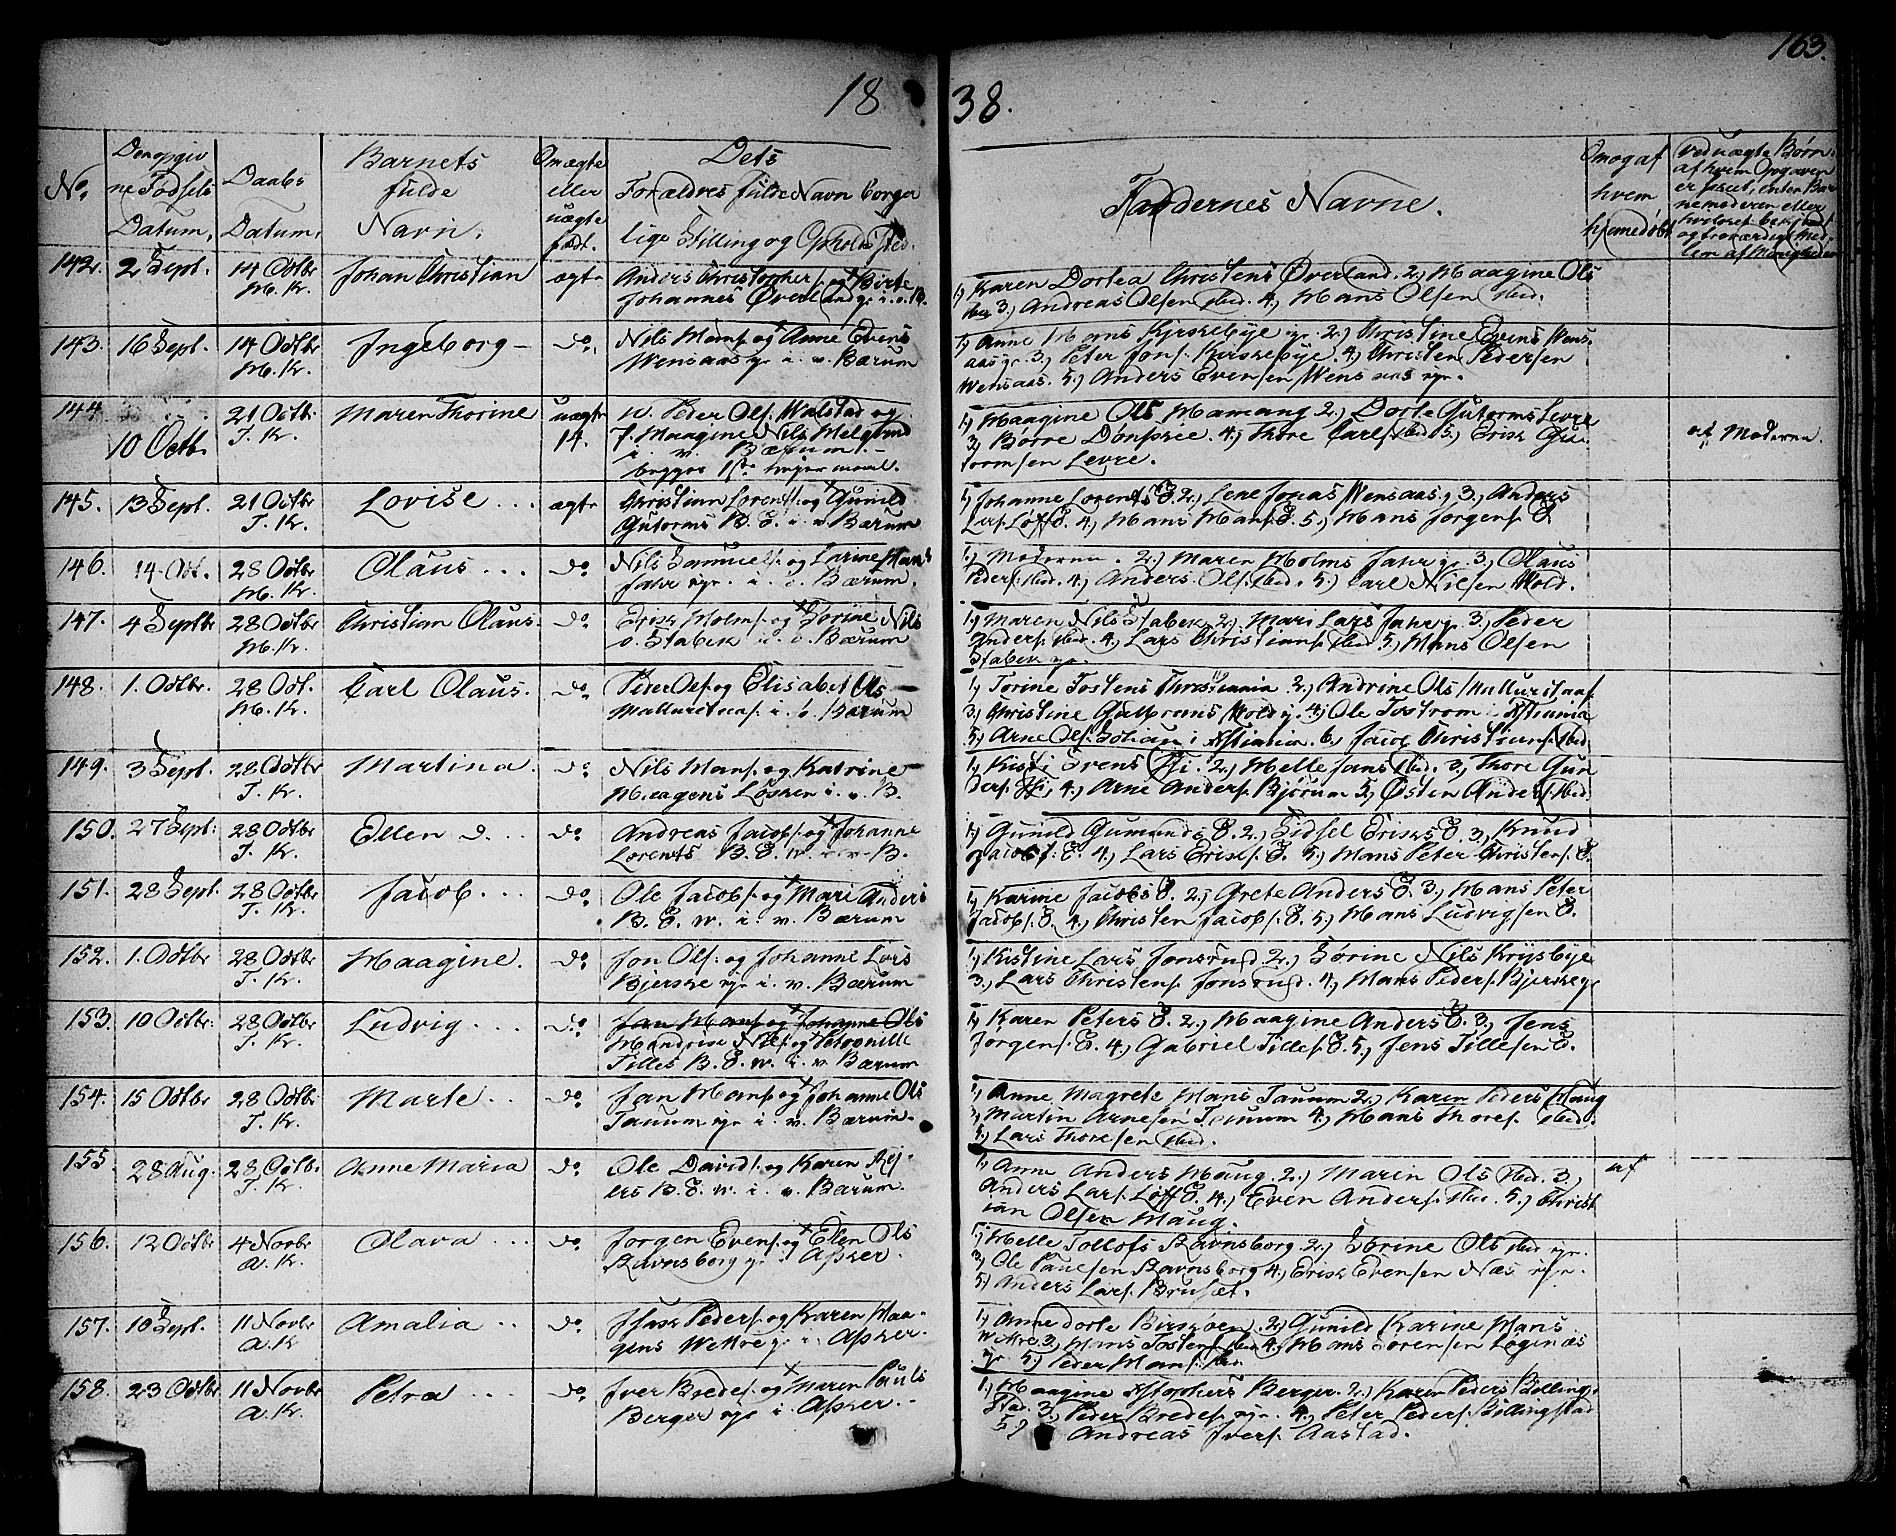 163.
18 38.
No.
Den opgiv
ne Fødsels
Datum.
Daabs
Datum.
Barnets
fulde
Navn.
Om ægte
eller
uægte
født.
Dets
Forældres fulde Navn borger
lige Stilling og Opholds Sted.
Faddernes Navne.
Om og af
hvem
hjemedøbt
ved uægte Børn
af hvem Opgaven
er skeet, enten Bar
nemoderen eller
142. 2 Sept. 14 Octbr H. K. Johan Christian ægte
Anders Christopher og Birte
Johannes Øverland i. v. B.
1, Karen Dortea Christens Øverland. 2, Haagine Ols
3, Andreas Olsen ibid. 4, Hans Olsen ibid.
143. 16 Sept. 14 Octbr H. K. Ingeborg do
Nils Hans. og Anne Evens
Wensaas gr i. v. Bærum
1, Anne Hans Kirkebye gr. 2, Christine Evens Wens
aas gr. 3, Peter Jons. Kirkebye. 4, Christen Pedersen
Wensaas. 5, Anders Evensen Wensaas gr.
144. 10 Octb. 21 Octb. T. K. Maren Thorine uægte 14.
U. Peder Ols. Walstad og
P. Haagine Nils
i. v. Bærum.
begges 1ste Leiermaal.
1, Haagine Ols Hamang 2, Dorte Gutorms Levre
3, Børre Dønskie. 4, Thore Carls. ibid 5, Erik Gu
tormsen Levre.
af Moderen.
145. 13 Sept. 21 Octbr T. K. Lovise ægte
Christian Lorents. og Gunild
Gutorms B. E. i. v. Bærum
1, Johanne Lorents E. 2, Lene Jonas Wensaas. 3, Anders
Lars. Løff E. 4, Hans Hans. E. 5, Hans Jorgens. E
146. 14 Oct. 28 Octbr H. K. Olaus do
Nils Samuels. og Karine Hans
Jahr gr. i. v. Bærum.
1, Moderen. 2, Maren Holms Jahr gr. 3, Olaus
Peders. ibid. 4, Anders Ols. ibid. 5, Carl Nilsen Wold.
147. 4 Septbr 28 Octbr H. K. Christian Olaus. do
Erik Holms. og Sørine Nils
o. Stabek i. v. Bærum
1, Maren Nils Stabek 2, Mari Lars Jahr gr 3, Peder
Anders. ibid. 4, Lars Christians. ibid 5, Hans Olsen
Stabek gr.
148. 1. Octbr. 28 Oct. H. K. Carl Olaus. do
Peter Ols. og Elisabet Ols
i. v. Bærum
1, Torine Tostens Christiania 2, Andrine Ols
3, Christine Wold g. 4, Ole Tostrom i Xstiania
5, Arne Ols. i Xstiania. 6, Jacob Christians. ibid.
149. 3 Sept. 28 Octbr T. K. Martina. do
Nils Hans. og Katrine
Haagens Løken i. v. B.
1, Kisti Sørens 2, Helle Jans ibid. 3, Thore Gun
ders. 4, Arne Anders. Bjørum 5, Østen Anders. ibid.
150. 27 Sept. 28 Octbr T. K. Ellen d. do
Andreas Jacobs. og Johanne
Lorents B. E. w. i. v. B.
1, Gunild Gumunds E. 2, Sidsel Eriks E. 3, Knud
Jacobs. E. 4, Lars Eriks. E. 5, Hans Peter Christens. E.
151. 28 Sept. 28 Octbr T. K. Jacob. do
Ole Jacobs. og Mari Anders
B. E. w. i. v. Bærum
1, Karine Jacobs E. 2, Grete Anders E. 3, Hans Peter
Jacobs. E. 4, Christen Jacobs. E. 5, Hans Ludvigsen E.
152. 1. Octbr 28 Octbr T. K. Haagine. do
Jon Ols. og Johanne Lars
Bjerke gr i. v. Bærum
1, Kistine Lars Jonsrud 2, Sørine Nils Krysbye
3, Lars Christens. Jonsrud. 4, Hans Peders. Bjerke g.
153. 10 Octbr. 28 Octbr T. K. Ludvig. do
Jan Hans. og Johanne Ols
Hendrik Nils. og Petronille
Tilles B. E. w. i. v. Bærum
1, Karen Peters E. 2, Haagine Anders E. 3, Jens
Jorgens. E. 4, Gabriel Tilles. E. 5, Jens Tillesen E.
154. 15 Octbr 28 Octbr T. K. Marte do
Jan Hans. og Johanne Ols
Tanum gr i. v. Bærum.
1, Anne Magrete Hans Tanum 2, Karen Peders Haug
3, Martin Arnesen Tanum 4, Hans Thores. ibid.
5, Lars Thoresen ibid.
155. 28 Aug. 28 Octb. T. K. Anne Maria do
Ole Davids. og Karen Rej
ers B. E. w. i. v. Bærum.
1, Anne Anders Haug. 2, Maren Ols ibid. 3,
Anders Lars. Løff E. 4, Even Anders. ibid. 5, Christ
ian Olsen Haug.
af
156. 12 Octbr 4 Novbr A. K. Olava do
Jorgen Evens. og Ellen Ols
Ravnsborg gr i Asker.
1, Helle Tollofs Ravnsborg 2, Sørine Ols ibid gr.
3, Ole Paulsen Ravnsborg 4, Erik Evensen Næs gr.
5, Anders Lars. Bruset.
157. 10 Sept. 11 Novbr A. K. Amalia do
Isak Peders. og Karen Haa-
gens Wettre g i Asker.
1, Anne Dorte Birkøen. 2, Gunild Karine Hans
3, Hans Tostens. ibid 4, Hans Sorensen Løgenæs
gr. 5, Peder Hans. ibid
158. 23 Octbr 11 Novbr A. K. Petra do
Iver Bredes. og Maren Pauls
Berger gr i. Asker.
1, Haagine Xstophers Berger. 2, Karen Peders Billing
stad. 3, Peder Bredes. gr. 4, Peter Peders. Billingstad
5, Andreas Ivers. Aastad.